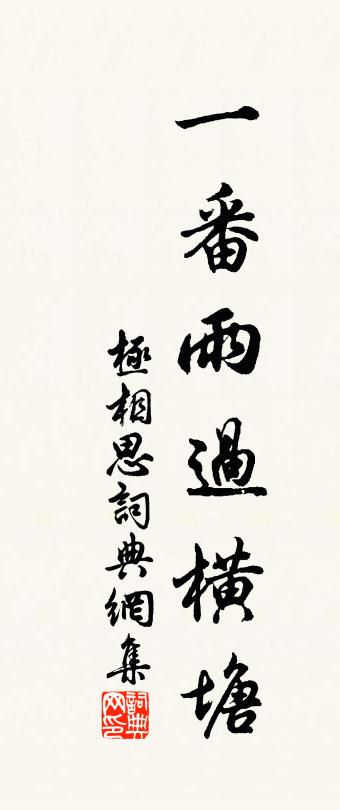 一番雨過橫塘
極相思詞典網集
詞典网印